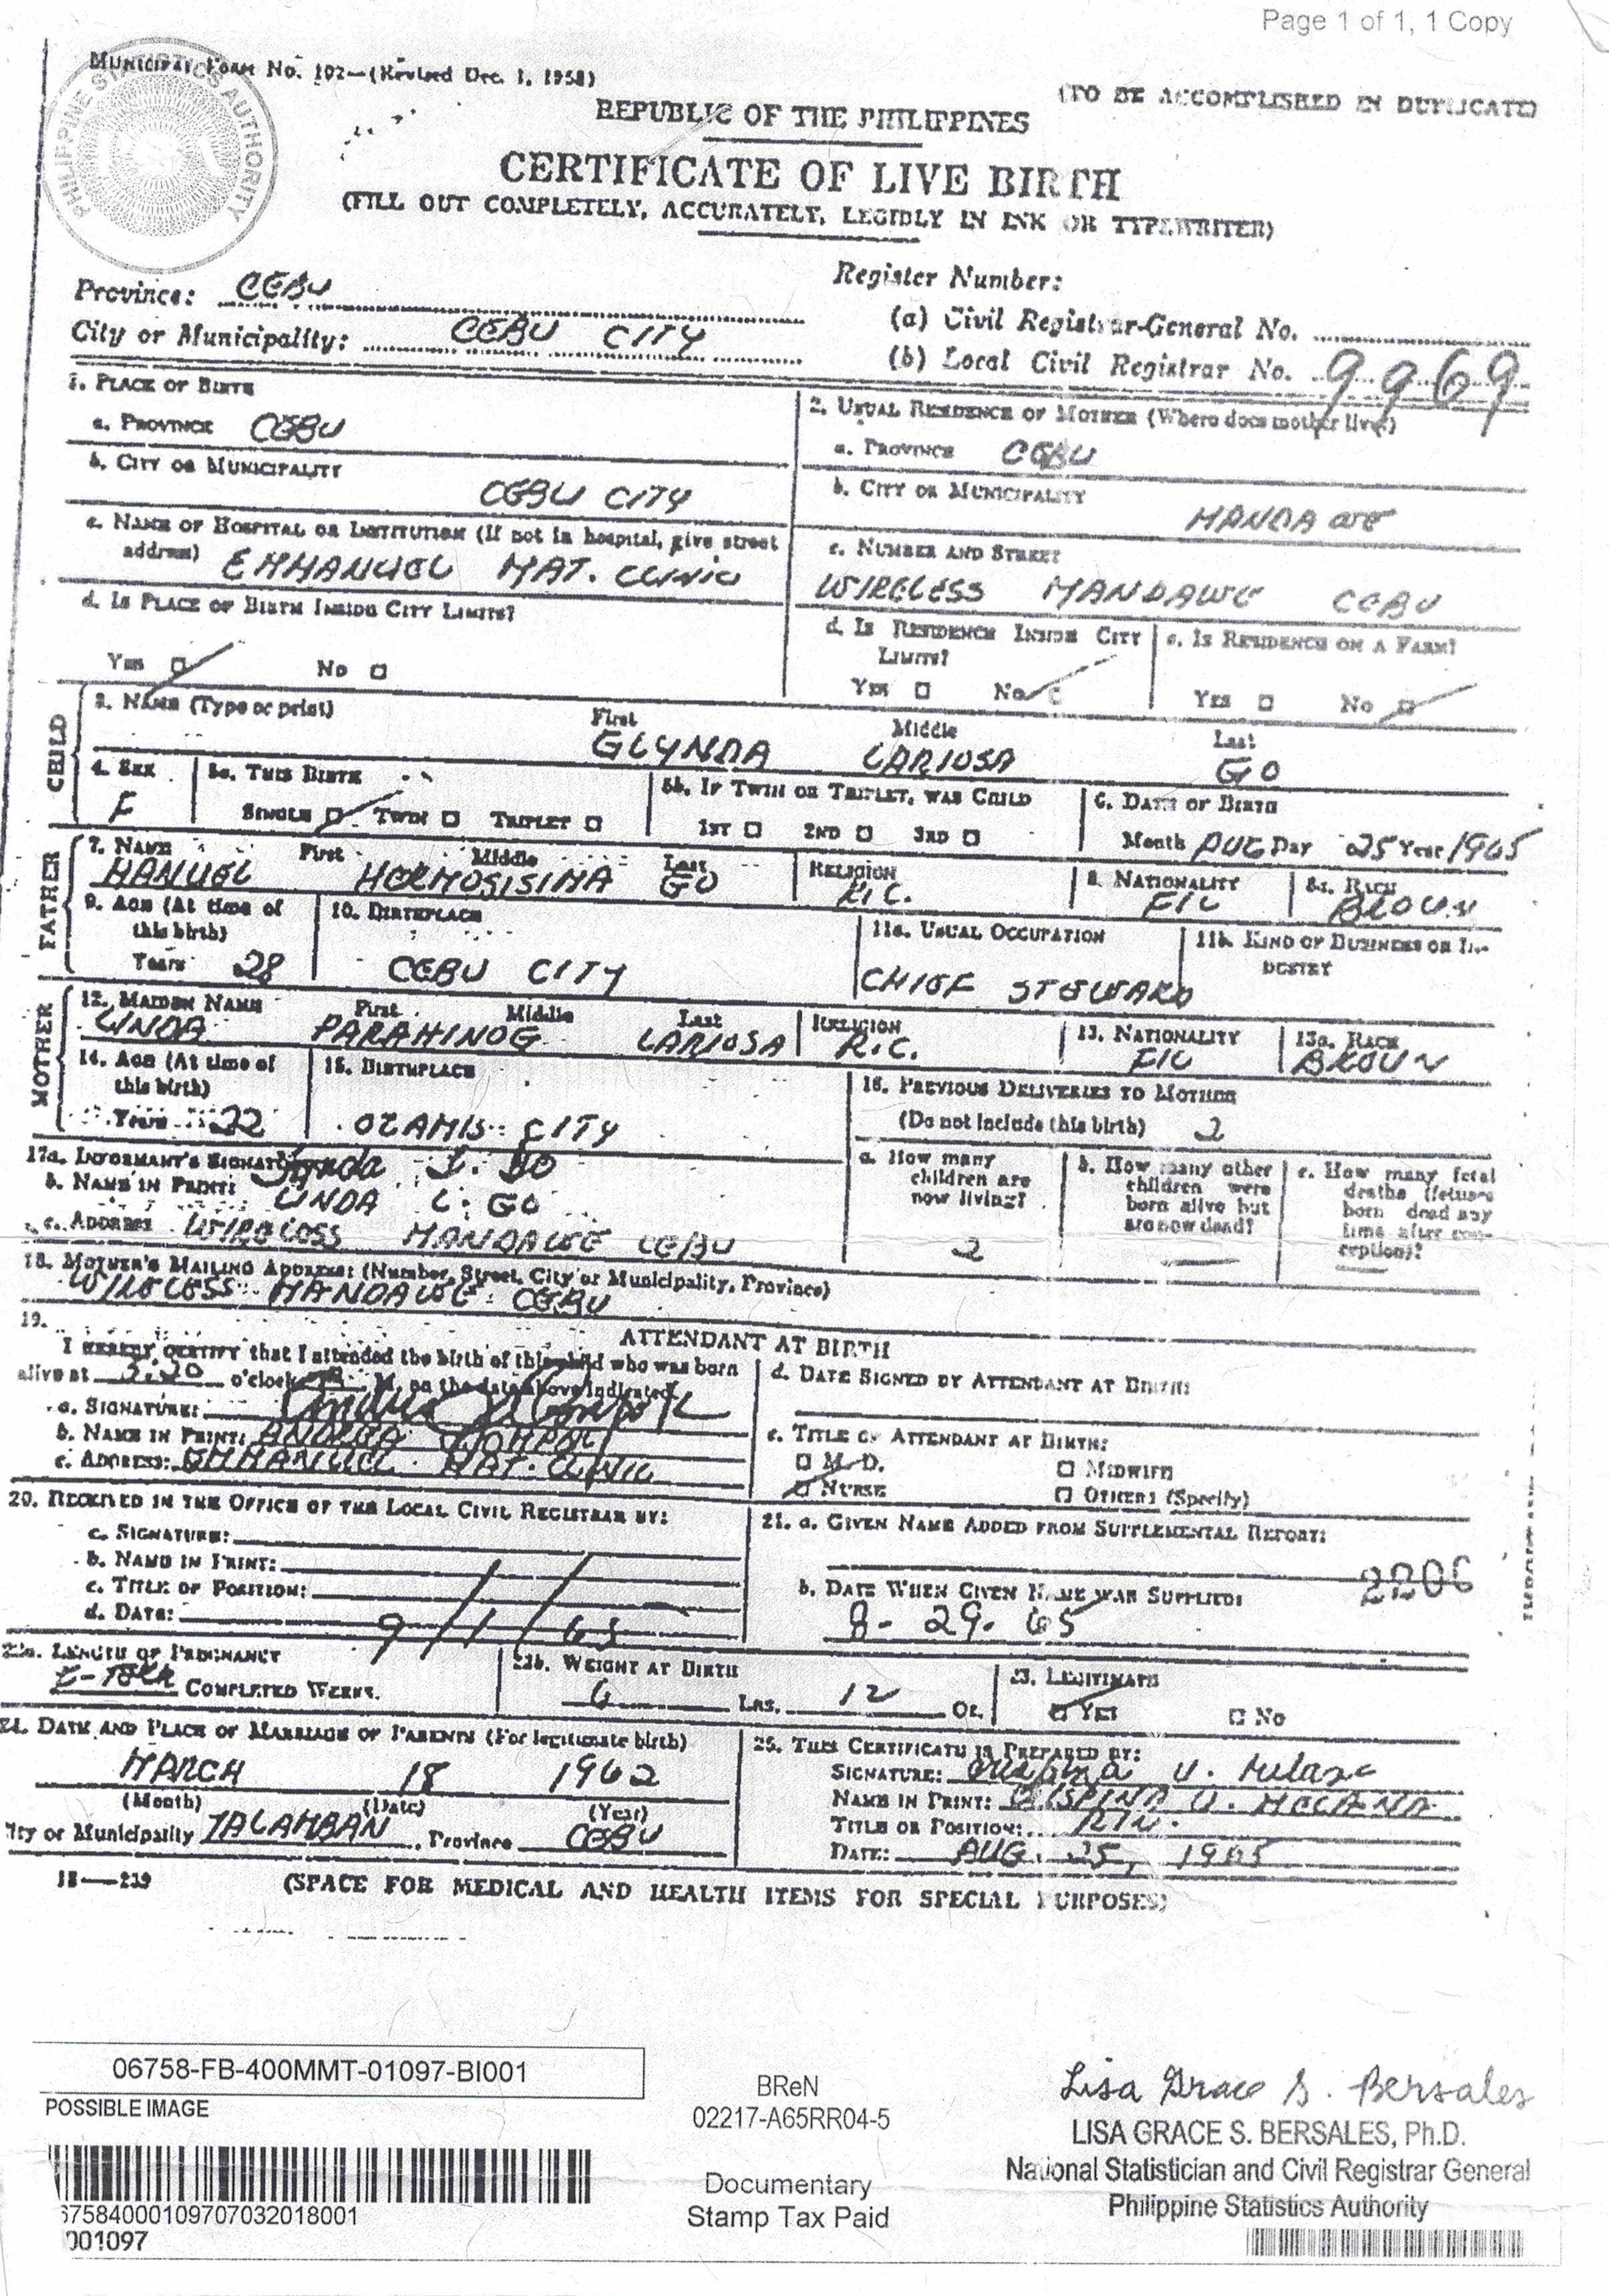 Page 1 of 1, 1 Copy
MUNICIPAL FORM No. 102—(Revised Dec. 1, 1958)
(TO BE ACCOMPLISHED IN DUPLICATE)
REPUBLIC OF THE PHILIPPINES
CERTIFICATE OF LIVE BIRTH
(FILL OUT COMPLETELY, ACCURATELY, LEGIBLY IN INK OR TYPEWRITER)
PHILIPPINE STATISTICS AUTHORITY
Province: CEBU
City or Municipality: CEBU CITY
Register Number:
(a) Civil Registrar-General No.
(b) Local Civil Registrar No. 9969
1. PLACE OF BIRTH
a. PROVINCE CEBU
b. CITY OR MUNICIPALITY
CEBU CITY
c. NAME OF HOSPITAL OR INSTITUTION (If not in hospital, give street address) EMMANUEL MAT. CLINIC
d. IS PLACE OF BIRTH INSIDE CITY LIMITS?
YES NO
2. USUAL RESIDENCE OF MOTHER (Where does mother live?)
a. PROVINCE CEBU
b. CITY OR MUNICIPALITY
MANDAWE
c. NUMBER AND STREET
WIRELESS MANDAWE CEBU
d. IS RESIDENCE INSIDE CITY LIMITS?
YES NO
e. IS RESIDENCE ON A FARM?
YES NO
CHILD
3. NAME (Type or print) First Middle Last
GLYNDA LARIOSA GO
4. SEX
F
5a. THIS BIRTH
SINGLE TWIN TRIPLET
5b. IF TWIN OR TRIPLET, WAS CHILD
1ST 2ND 3RD
6. DATE OF BIRTH
Month AUG Day 25 Year 1965
FATHER
7. NAME First Middle Last
MANUEL HERMOSISIMA GO
RELIGION
R.C.
8. NATIONALITY
FIL
8a. RACE
BROWN
9. AGE (At time of this birth)
Years 28
10. BIRTHPLACE
CEBU CITY
11a. USUAL OCCUPATION
CHIEF STEWARD
11b. KIND OF BUSINESS OR INDUSTRY
MOTHER
12. MAIDEN NAME First Middle Last
LINDA PARAMINOG LARIOSA
RELIGION
R.C.
13. NATIONALITY
FIL
13a. RACE
BROWN
14. AGE (At time of this birth)
Years 22
15. BIRTHPLACE
OZAMIS CITY
16. PREVIOUS DELIVERIES TO MOTHER
(Do not include this birth) 2
a. How many children are now living?
2
b. How many other children were born alive but are now dead?
c. How many fetal deaths (fetuses born dead any time after conception)?
17a. INFORMANT'S SIGNATURE Linda L. Go
b. NAME IN PRINT: LINDA L. GO
c. ADDRESS WIRELESS MANDAWE CEBU
18. MOTHER'S MAILING ADDRESS: (Number, Street, City or Municipality, Province)
WIRELESS MANDAWE CEBU
19. ATTENDANT AT BIRTH
I HEREBY CERTIFY that I attended the birth of this child who was born
alive at o'clock M. on the date above indicated.
a. SIGNATURE:
b. NAME IN PRINT: ANDREA
c. ADDRESS: EMMANUEL MAT. CLINIC
d. DATE SIGNED BY ATTENDANT AT BIRTH:
e. TITLE OF ATTENDANT AT BIRTH:
M.D. MIDWIFE
NURSE OTHERS (Specify)
20. RECEIVED IN THE OFFICE OF THE LOCAL CIVIL REGISTRAR BY:
a. SIGNATURE:
b. NAME IN PRINT:
c. TITLE OR POSITION:
d. DATE: 9/1/65
21. a. GIVEN NAME ADDED FROM SUPPLEMENTAL REPORT:
2206
b. DATE WHEN GIVEN NAME WAS SUPPLIED:
8-29-65
22a. LENGTH OF PREGNANCY
COMPLETED WEEKS.
22b. WEIGHT AT BIRTH
6 LBS. 12 OZ.
23. LEGITIMATE
YES NO
24. DATE AND PLACE OF MARRIAGE OF PARENTS (For legitimate birth)
MARCH 18 1962
(Month) (Date) (Year)
City or Municipality TALAMBAN, Province CEBU
25. THIS CERTIFICATE IS PREPARED BY:
SIGNATURE:
NAME IN PRINT: CRISPINA U.
TITLE OR POSITION:
DATE: AUG. 25, 1965
18—239 (SPACE FOR MEDICAL AND HEALTH ITEMS FOR SPECIAL PURPOSES)
06758-FB-400MMT-01097-BI001
POSSIBLE IMAGE
67584000109707032018001
001097
BReN
02217-A65RR04-5
Documentary
Stamp Tax Paid
Lisa Grace S. Bersales
LISA GRACE S. BERSALES, Ph.D.
National Statistician and Civil Registrar General
Philippine Statistics Authority